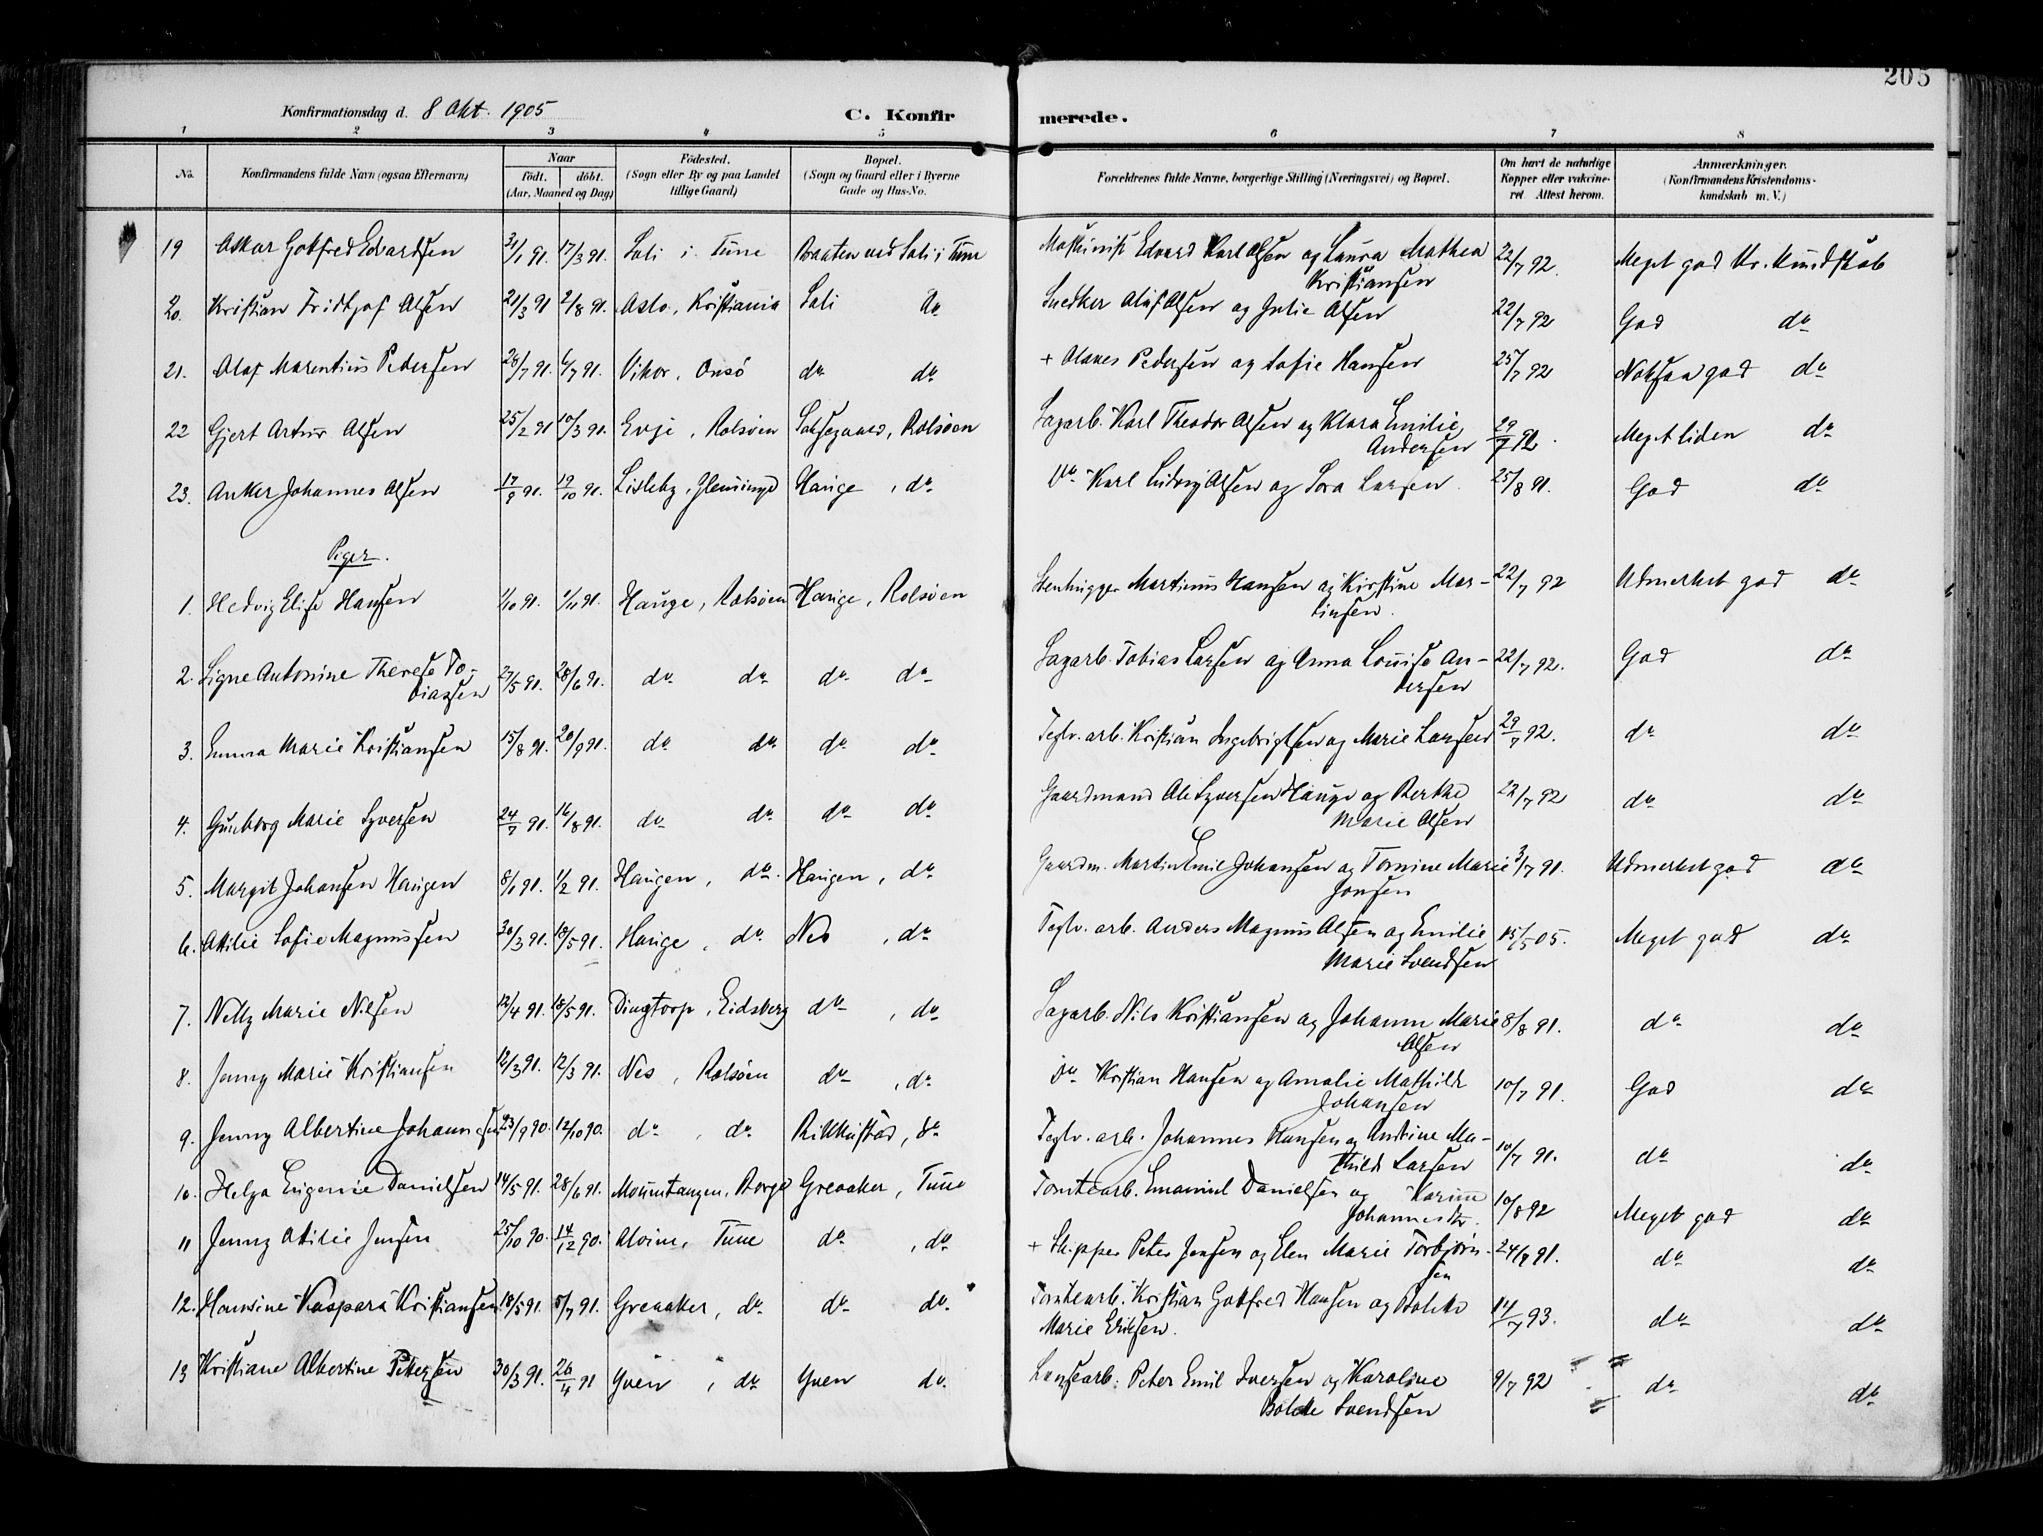 205
Konfirmationsdag d. 8 Okt. 1905 C. Konfirmerede.
1 2 3 4 5 6 7 8
No. Konfirmandens fulde Navn (ogsaa Efternavn) Naar födt. döbt. (Aar, Maaned og Dag) Födested. (Sogn eller By og paa Landet tillige Gaard) Bopæl. (Sogn og Gaard eller i Byerne Gade og Hus-No. Forældrenes fulde Navne, borgerlige Stilling (Næringsvei) og Bopæl. Om havt de naturlige Kopper eller vakcineret. Attest herom. Anmærkninger. (Konfirmandens Kristendomskundskab m. V.)
19 Oskar Gotfred Edvardsen 31/1 91. 17/3 91. Soli i Tune Braaten ved Soli i Tune Maskinist Edvard Karl Olsen og Laura Mathea Kristiansen 22/7 92. Meget god Kr. Kundskab
20. Kristian Fridtjof Olsen 21/3 91 2/8 91. Oslo, Kristiania Soli do Snedker Oluf Olsen og Julie Olsen 22/7 92 God do
21. Olaf Marentius Pedersen 28/7 91. 6/7 91. Viker, Onsö do do + Olaves Pedersen og Sofie Hansen 25/7 92 Noksaa god do
22 Gjert Artur Olsen 25/2 91 10/3 91. Evje, Rolsöen Salsegaard, Rolsöen Sagarb. Karl Theodor Olsen og Klara Emilie Andersen 29/7 92. Meget liden do
23. Anker Johannes Olsen 17/9 91. 19/10 91. Lisleby, Glemminge Hauge, do Do Karl Ludvig Olsen og Lora Larsen. 25/8 91. God do
Piger.
1. Hedvig Elise Hansen 1/10 91. 1/11 91. Hauge, Rolsöen Hauge, Rolsöen Stenhugger Martinus Hansen og Kirstine Martinsen. 22/7 92 Udmerket god do
2. Signe Antonine Therese Tobiassen 27/5 91. 28/6 91. do do do do Sagarb. Tobias Larsen og Anna Louise Andersen 22/7 92. God do
3. Emma Marie Kristiansen 15/8 91. 20/9 91. do do do do Teglv. arb. Kristian Ingebrigtsen og Marie Larsen 29/7 92. do do
4. Gunborg Marie Syversen 24/7 91. 16/8 91. do do do do Gaardmand Ole Syversen Hauge og Berthe Marie Olsen 22/7 92 do do
5. Margit Johansen Haugen 8/1 91. 1/2 91. Haugen, do. Haugen, do Gaardm. Martin Emil Johansen og Tomine Marie Jonsen 3/7 91. Udmerket god do
6. Otilie Sofie Magnussen 30/3 91. 18/5 91. Hauge, do. Nes, do Teglv. arb. Anders Magnus Olsen og Emilie Marie Svendsen 15/5 05. Meget god do
7. Nelly Marie Nilsen 12/4 91. 18/5 91. Dingtorp, Eidsberg do, do Sagarb. Nils Kristiansen og Johanne Marie Olsen 8/8 91. do do
8. Jenny Marie Kristiansen 12/3 91. 12/3 91. Nes, Rolsöen do, do. Do Kristian Hansen og Amalie Mathilde Johansen 10/7 91. God do
9. Jenny Albertine Johannesen 23/9 90. 12/10 90. do, do. Rikkustad, do Teglv. arb. Johannes Hansen og Andrine Mathilde Larsen 10/7 91. do do
10. Helga Eugenie Danielsen 14/5 91. 28/6 91. Moumtangen, Borge Greaaker, Tune Tomtearb. Emanuel Danielsen og Karine Johannesdtr. 10/8 92 Meget god do
11 Jenny Otilie Jensen 25/10 90. 14/12 90. Alvim, Tune do, do + Skipper Peter Jensen og Elen Marie Torbjørnsen 24/8 91. do do
12. Hansine Kaspara Kristiansen 18/5 91. 5/7 91. Greaaker, do. do do. Tomtearb. Kristian Gotfred Hansen og Bolette Marie Eriksen. 14/7 93. do do
13 Kristiane Albertine Petersen 30/3 91. 26/4 91 Yven, do Yven do. Lensearb. Peter Emil Iversen og Karoline Bolette Svendsen 9/7 92 do do